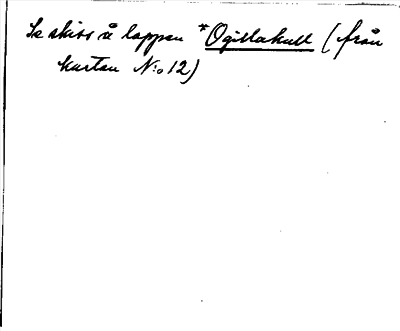 Se skiss å lappen *Ogillakull (från
kartan N:o 12)